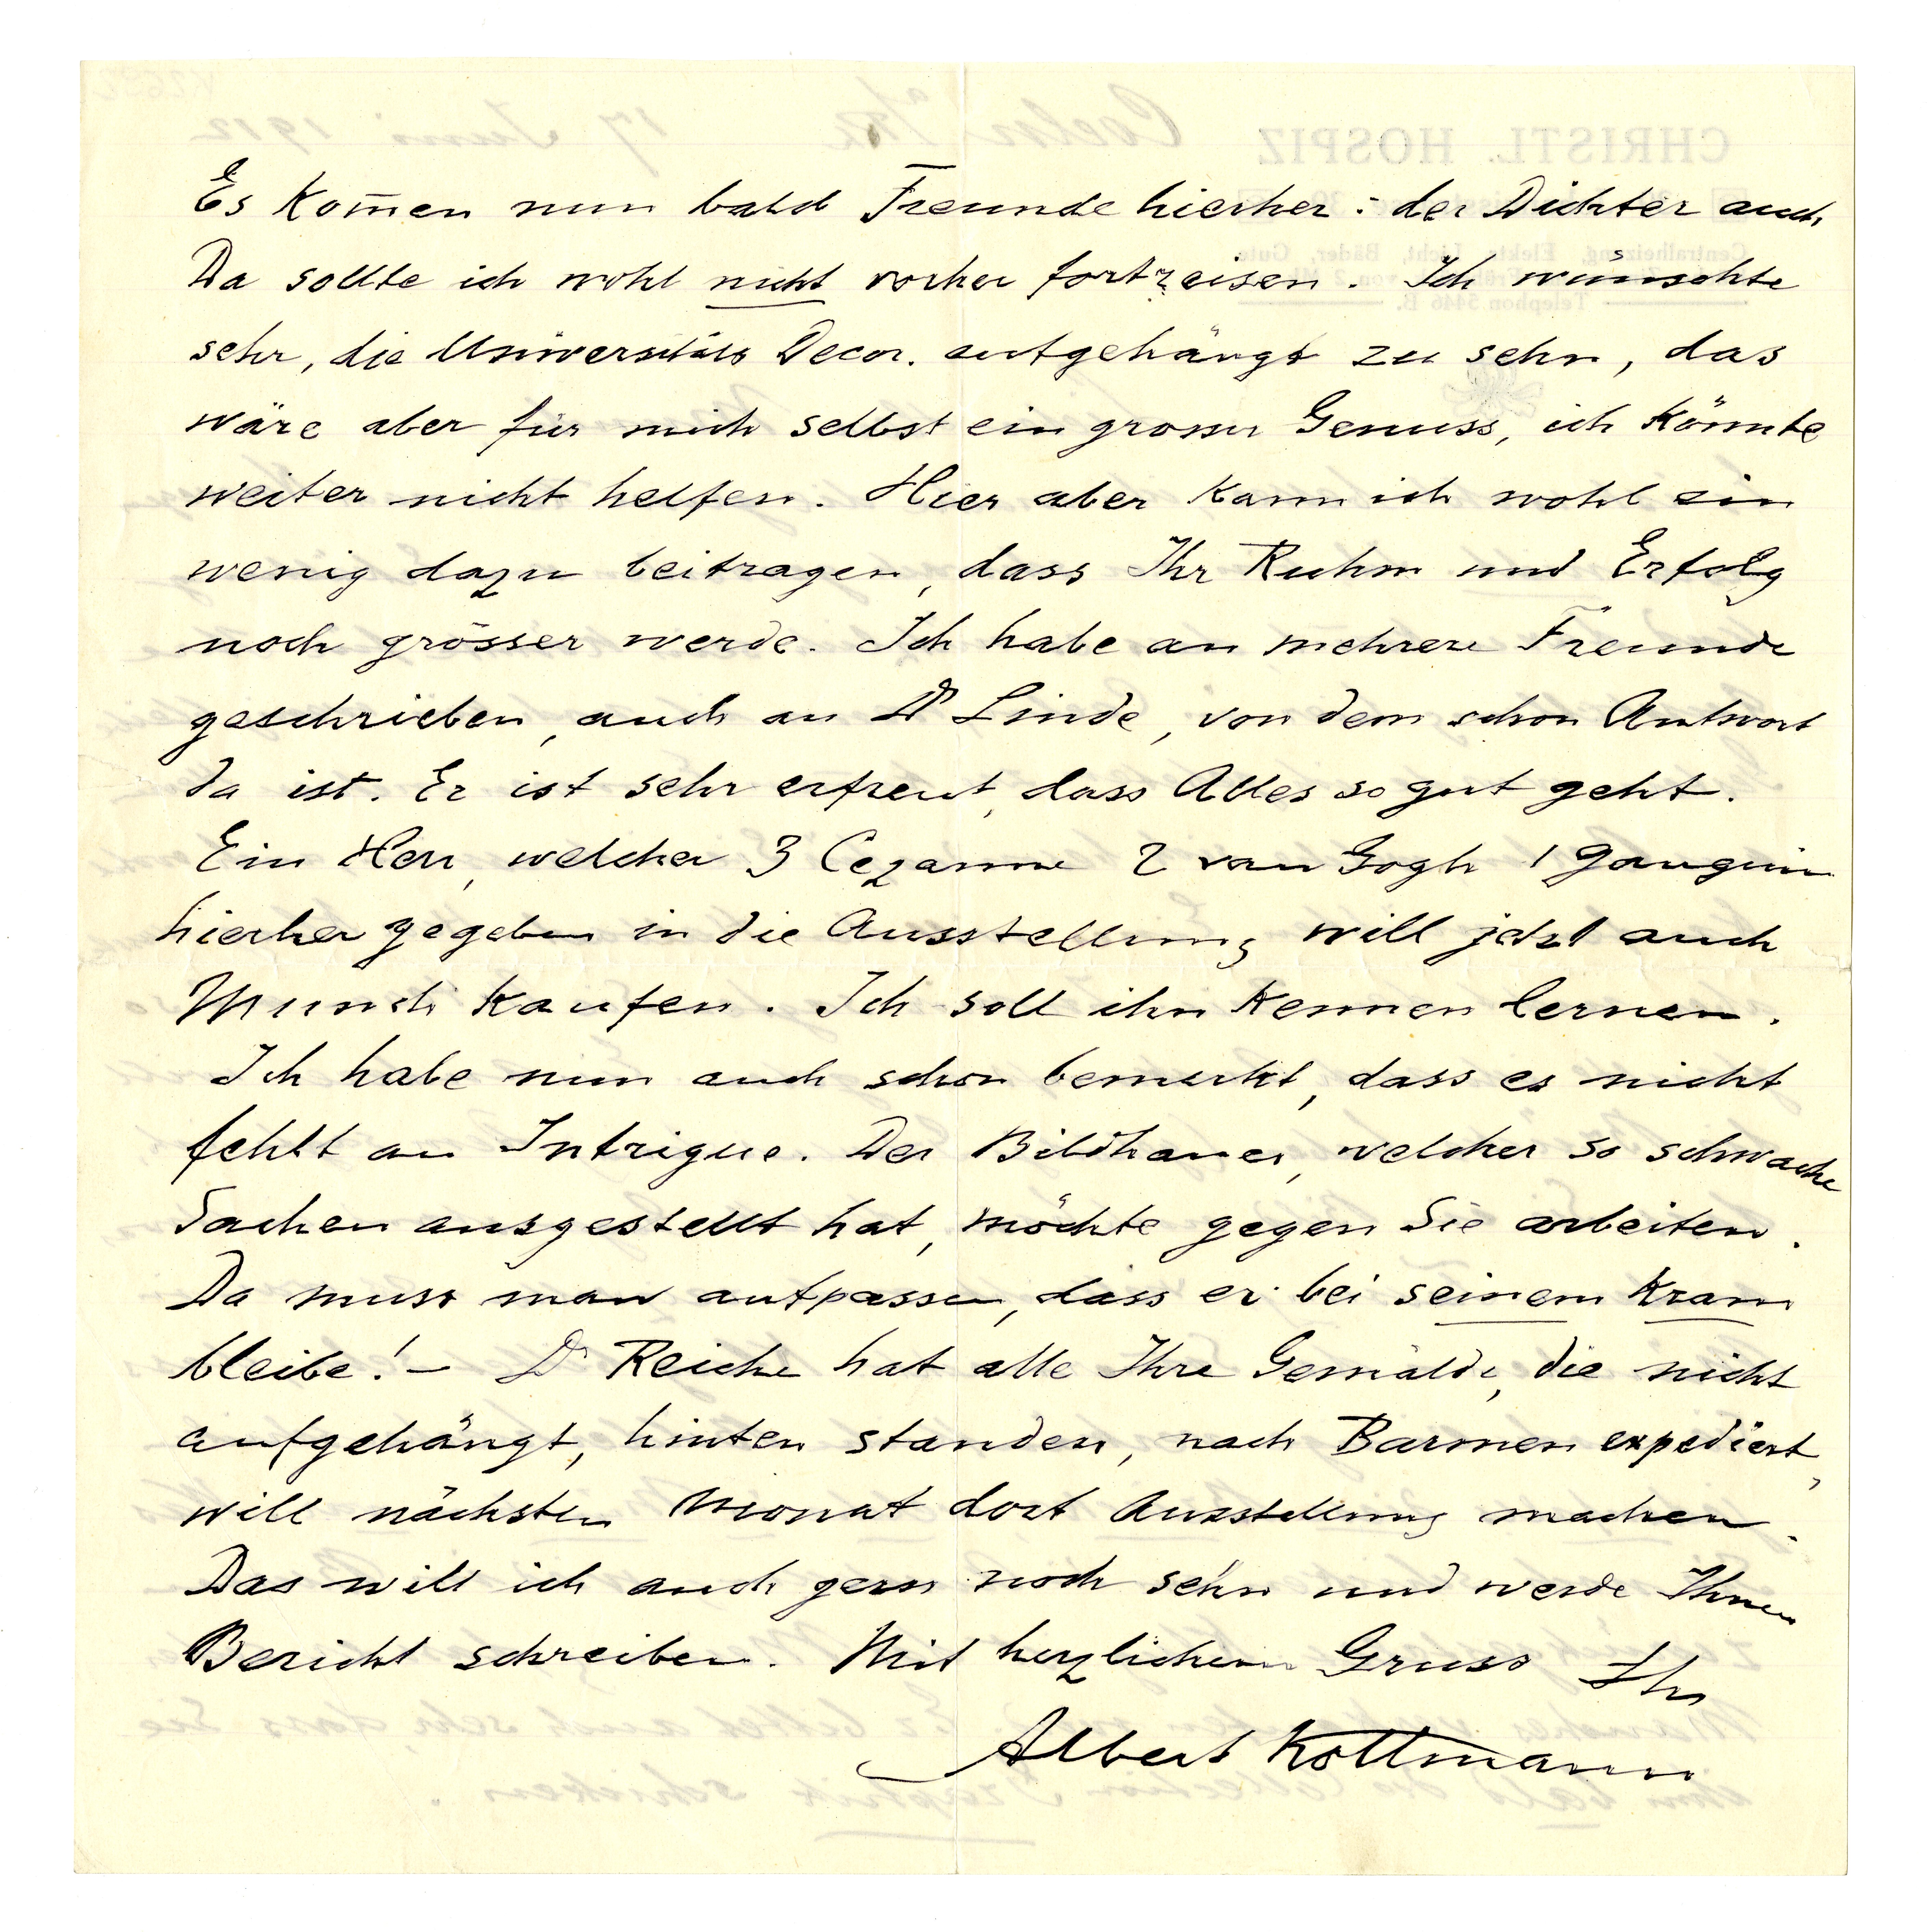 Es kom̄en nun bald Freunde hierher : der Dichter auch
Da sollte ich wohl nicht vorher fortreisen. Ich wünschte
sehr, die Universitäts Decor. aufgehängt zu sehn, das
wäre aber für mich selbst ein grosser Genuss, ich könnte
weiter nicht helfen. Hier aber kann ich wohl ein
wenig dazu beitragen, dass Ihr Ruhm und Erfolg
noch grösser werde. Ich habe an mehrere Freunde
geschrieben, auch an Dr Linde, von dem schon Antwort
da ist. Er ist sehr erfreut, dass Alles so gut geht.
Ein Herr, welcher 3 Cezanne 2 van Gogh 1 Gauguin
hierher gegeben in die Ausstellung will jetzt auch
Munch kaufen. Ich soll ihn kennen lernen.
Ich habe nun auch schon bemerkt, dass es nicht
fehlt an Intrigue. Der Bildhauer, welcher so schwache
Sachen ausgestellt hat, möchte gegen Sie arbeiten.
Da muss man aufpassen, dass er bei seinem Kram
bleibe! – Dr Reiche hat alle Ihre Gemälde, die nicht
aufgehängt, hinten standen, nach Barmen expediert,
will nächsten Monat dort Ausstellung machen.
Das will ich auch gern noch sehn und werde Ihnen
Bericht schreiben. Mit herzlichem Gruss Ihr
Albert Kollmann
CHRISTL. HOSPIZ
Coeln a/Rh 17 Juni 1912
Centralheizung, Elektr. Licht, Bäder, Gute
Telephon 5446 B.